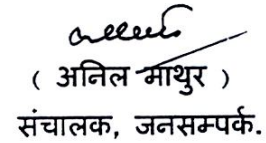 ( अनिल माथुर )
संचालक, जनसम्पर्क.